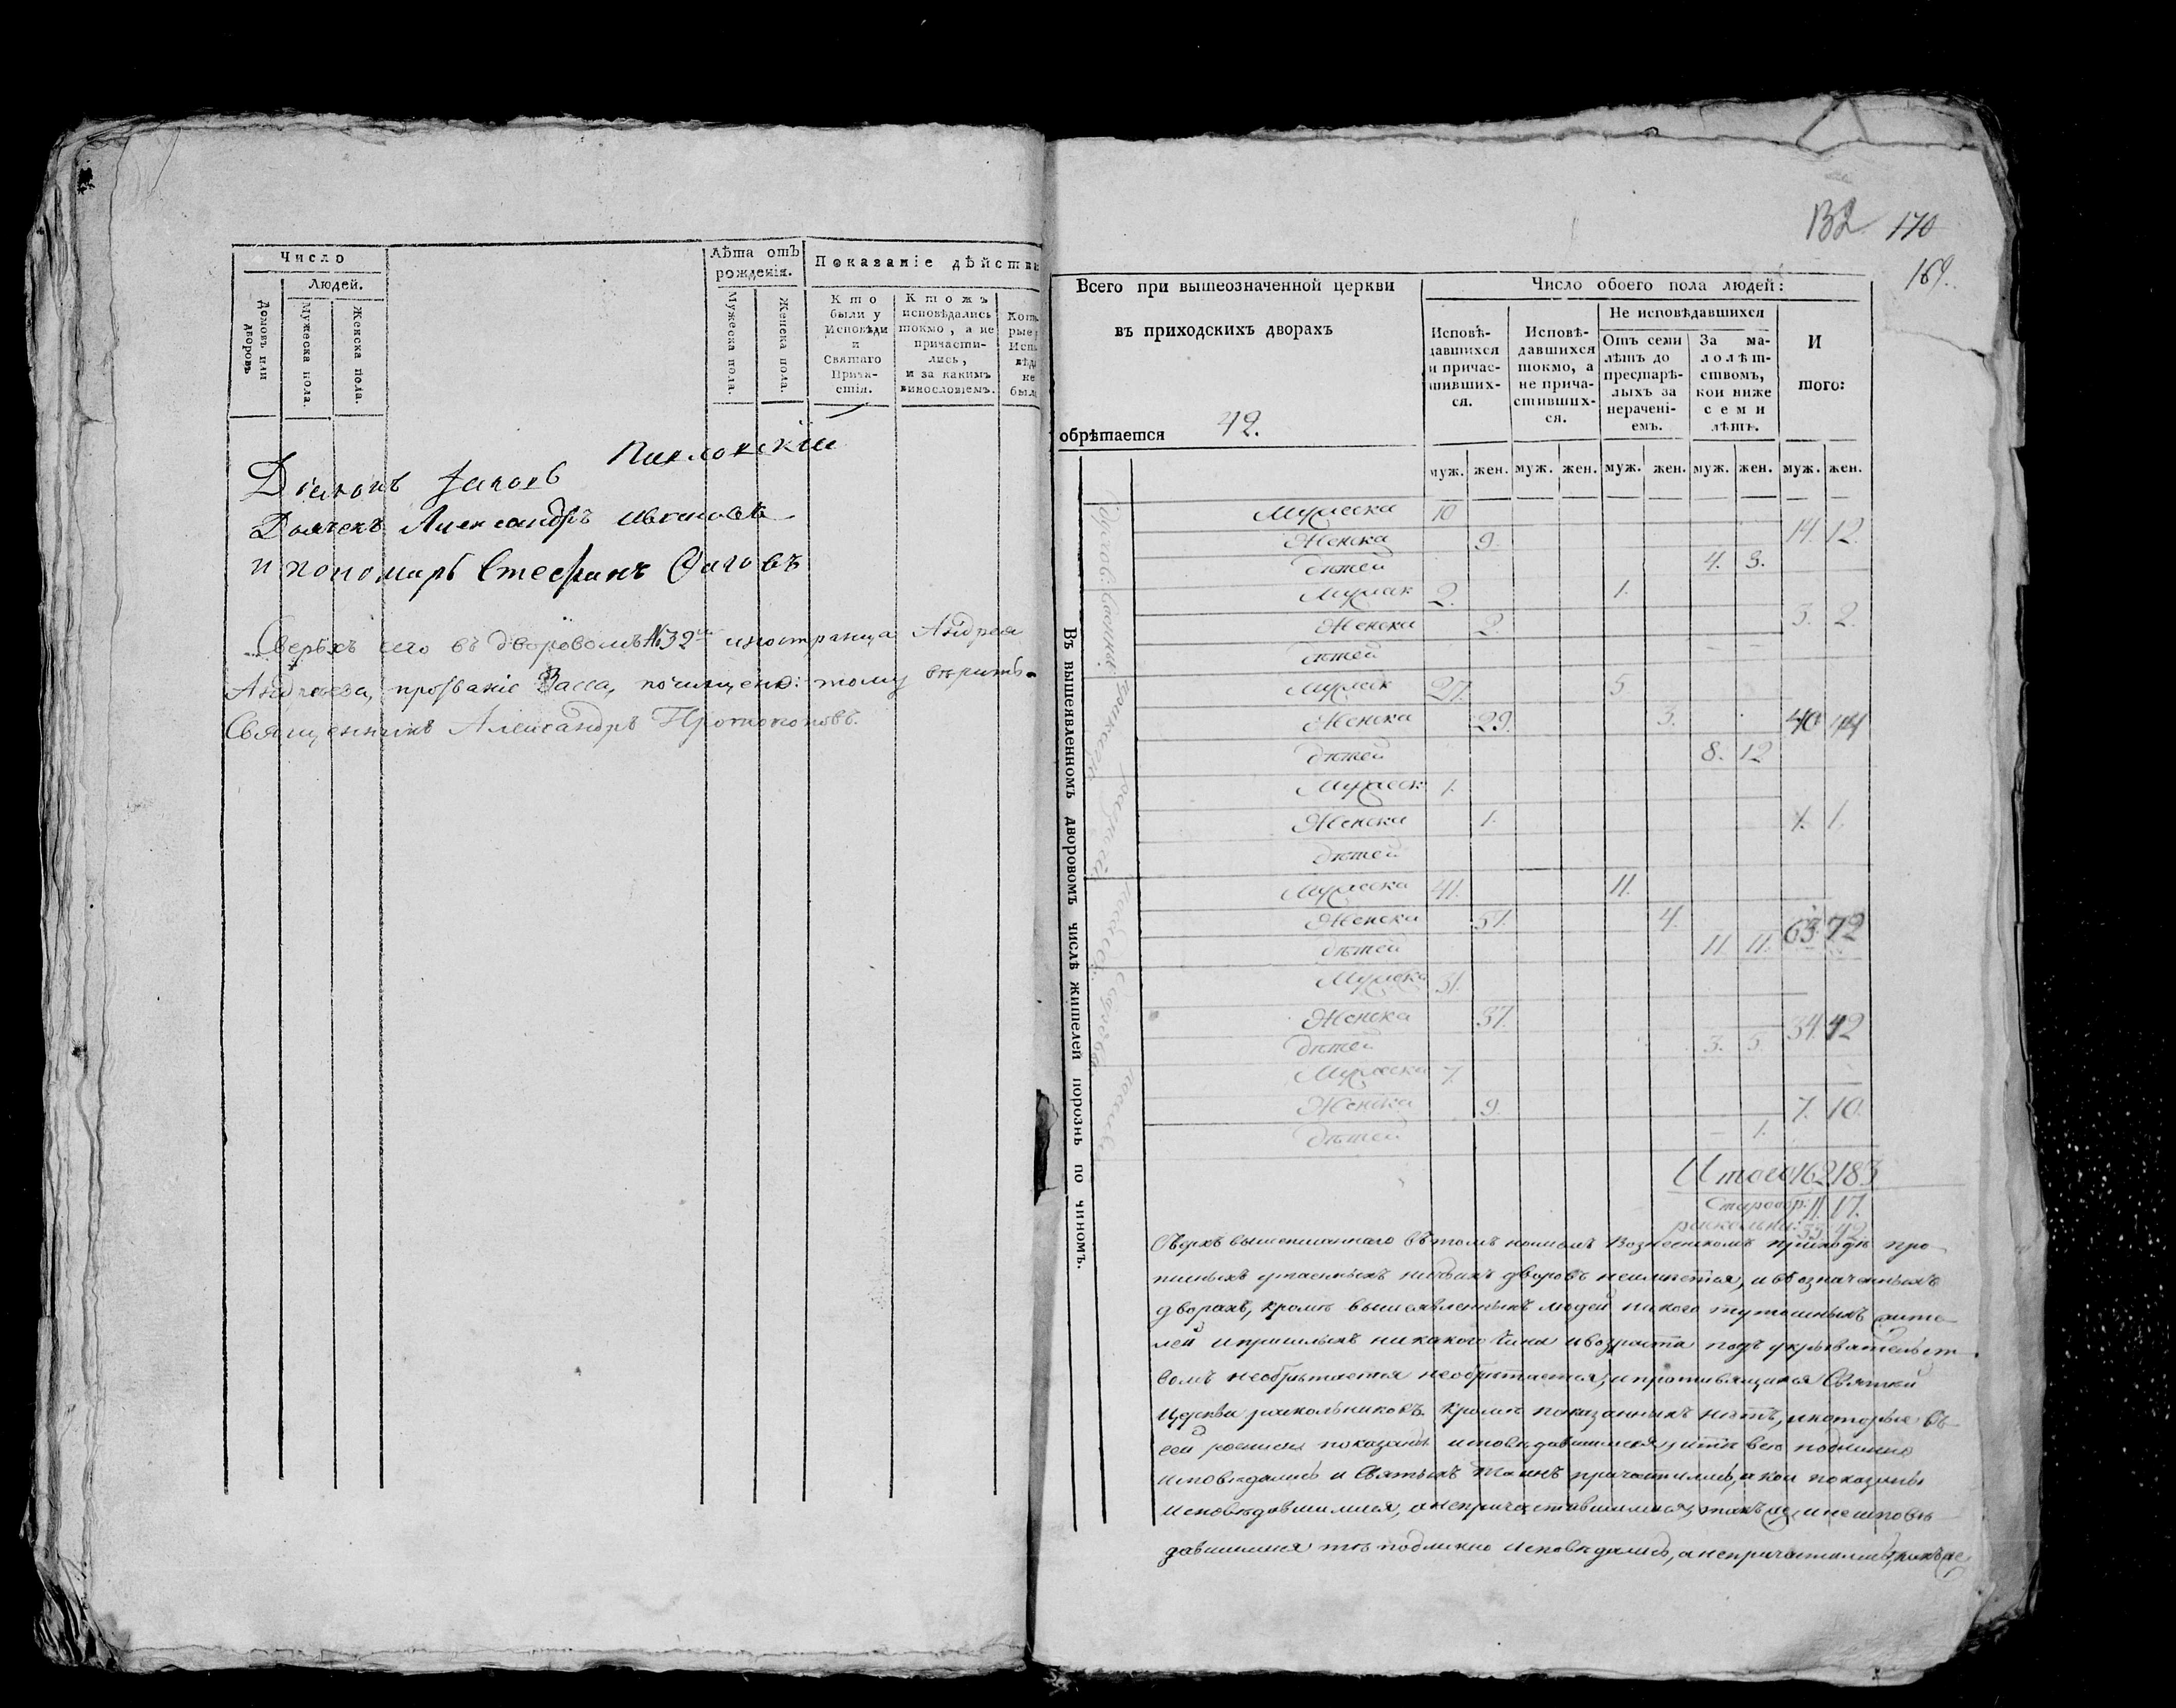 Число
Людей.
Домовъ или дворовъ
Мужеска пола.
Женска пола.
Лѣта отъ рожденія.
Мужеска пола.
Женска пола.
Показаніе дѣйства
Кто были у Исповѣди и Святаго Причастія.
Ктожъ исповѣдались токмо, а не причастились, и за какимъ винословіемъ.
Діаконъ Іаковъ
Дьячекъ Александръ Ивановъ
и пономарь Стефанъ
Сверьхъ сего въ дворовомъ № 32 иностранца Андрея
Андреева, прозваніе Засса, тому вѣрить.
Священникъ Александръ Протопоповъ.
132 170
169.
Всего при вышеозначенной церкви
въ приходскихъ дворахъ
обрѣтается 42.
Число обоего пола людей:
Исповѣдавшихся и причастившихся.
Исповѣдавшихся токмо, а не причастившихся.
Не исповѣдавшихся
Отъ семи лѣтъ до престарѣлыхъ за нераченіемъ.
За малолѣтствомъ, кои ниже семи лѣтъ.
И того:
муж. жен. муж. жен. муж. жен. муж. жен. муж. жен.
Въ вышеявленномъ дворовомъ числѣ жителей порознь по чиномъ.
Мужеска 10
Женска 9. 14. 12.
дѣтей 4. 3.
Мужеск 2. 1.
Женска 2. 3. 2.
дѣтей – –
Мужеск 27. 5
Женска 29. 3. 40 44
дѣтей 8. 12
Мужеск 1.
Женска 1. 1. 1.
дѣтей
Мужеска 41. 11.
Женска 57. 4. 63. 72
дѣтей 11. 11.
Мужеска 31.
Женска 37. 34. 42
дѣтей 3. 5
Мужеска 7.
Женска 9. 7. 10.
дѣтей – 1.
Итого 162 183
Старообр: 11. 17.
раскольни: 35. 42.
Сверхъ вышеписаннаго въ томъ Вознесенскомъ приходѣ про-
писныхъ утаенныхъ ничьихъ дворовъ неимѣется, и въ означенныхъ
дворахъ, кромѣ вышеявленныхъ людей никого тутошныхъ жите-
лей и пришлыхъ никакого чина и возраста подъ укрывательст-
вомъ необрѣтается необрѣтается, и противящихся Святѣй
Церкви раскольниковъ кромѣ показанныхъ нѣтъ, и которые въ
сей росписи показаны исповѣдавшимися, тѣ всѣ подлинно
исповѣдались и Святыхъ Таинъ причастились, а кои показаны
исповѣдавшимися, а непричастившимися, такъ же, и неисповѣ-
давшимися тѣ подлинно исповѣдались, а непричастились, такъ же